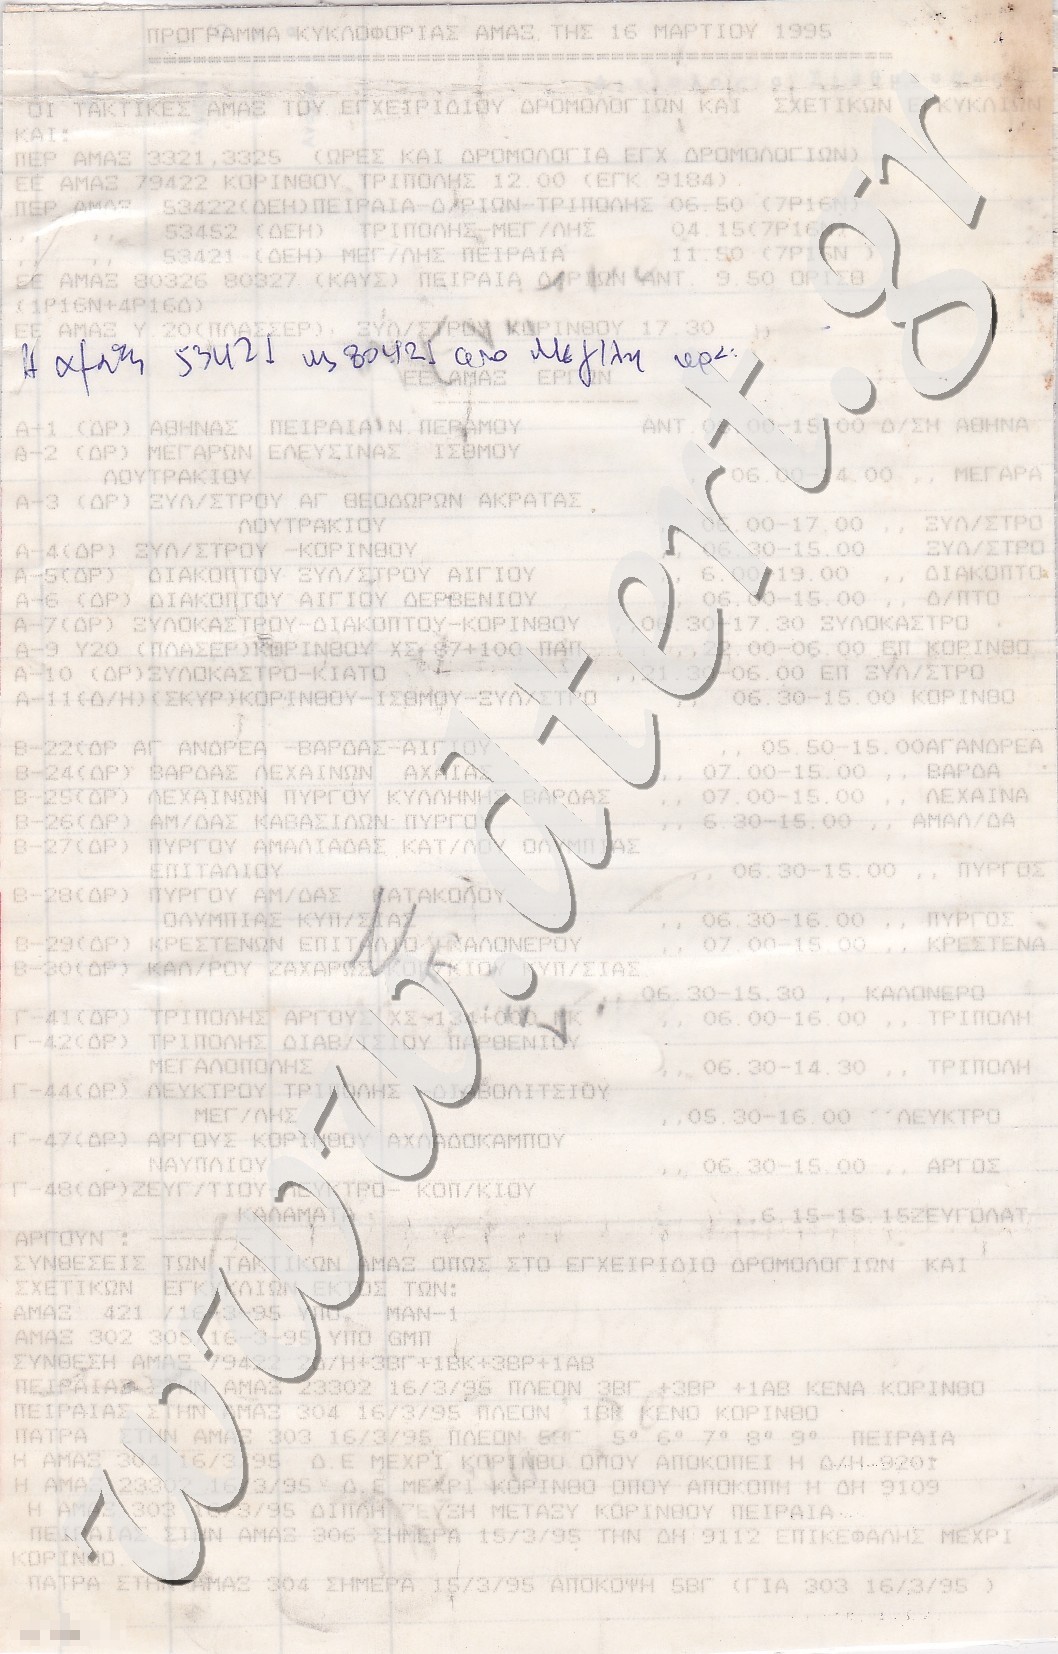 ΠΡΟΓΡΑΜΜΑ ΚΥΚΛΟΦΟΡΙΑΣ ΑΜΑΞ ΤΗΣ 16 ΜΑΡΤΙΟΥ 1995
ΟΙ ΤΑΚΤΙΚΕΣ ΑΜΑΞ ΤΟΥ ΕΓΧΕΙΡΙΔΙΟΥ ΔΡΟΜΟΛΟΓΙΩΝ ΚΑΙ ΣΧΕΤΙΚΩΝ ΕΓΚΥΚΛΙΩΝ
ΚΑΙ:
ΠΕΡ ΑΜΑΞ 3321,3325 (ΩΡΕΣ ΚΑΙ ΔΡΟΜΟΛΟΓΙΑ ΕΓΧ ΔΡΟΜΟΛΟΓΙΩΝ)
ΕΕ ΑΜΑΞ 79422 ΚΟΡΙΝΘΟΥ ΤΡΙΠΟΛΗΣ 12.00 (ΕΓΚ 9184)
ΠΕΡ ΑΜΑΞ 53422(ΔΕΗ)ΠΕΙΡΑΙΑ-Δ/ΡΙΩΝ-ΤΡΙΠΟΛΗΣ 06.50 (7Ρ16Ν)
,, ,, 53452 (ΔΕΗ) ΤΡΙΠΟΛΗΣ-ΜΕΓ/ΛΗΣ 04.15(7Ρ16Ν)
,, ,, 53421 (ΔΕΗ) ΜΕΓ/ΛΗΣ ΠΕΙΡΑΙΑ 11.50 (7Ρ16Ν )
ΕΕ ΑΜΑΞ 80326 80327 (ΚΑΥΣ) ΠΕΙΡΑΙΑ Δ/ΡΙΩΝ ΑΝΤ. 9.50 ΟΡΙΣΘ
(1Ρ16Ν+4Ρ16Δ)
ΕΕ ΑΜΑΞ Υ 20(ΠΛΑΣΣΕΡ) ΞΥΛ/ΣΤΡΟΥ ΚΟΡΙΝΘΟΥ 17.30
Η 53421 80421 απο Μεγ/λη
ΕΕ ΑΜΑΞ ΕΡΓΩΝ
Α-1 (ΔΡ) ΑΘΗΝΑΣ ΠΕΙΡΑΙΑ Ν ΠΕΡΑΜΟΥ ΑΝΤ. 00-15.00 Δ/ΣΗ ΑΘΗΝΑ
Α-2 (ΔΡ) ΜΕΓΑΡΩΝ ΕΛΕΥΣΙΝΑΣ ΙΣΘΜΟΥ
ΛΟΥΤΡΑΚΙΟΥ 06.00-14.00 ,, ΜΕΓΑΡΑ
Α-3 (ΔΡ) ΞΥΛ/ΣΤΡΟΥ ΑΓ ΘΕΟΔΩΡΩΝ ΑΚΡΑΤΑΣ
ΛΟΥΤΡΑΚΙΟΥ 06.00-17.00 ,, ΞΥΛ/ΣΤΡΟ
Α-4(ΔΡ) ΞΥΛ/ΣΤΡΟΥ -ΚΟΡΙΝΘΟΥ ,, 06.30-15.00 ΞΥΛ/ΣΤΡΟ
Α-5(ΔΡ) ΔΙΑΚΟΠΤΟΥ ΞΥΛ/ΣΤΡΟΥ ΑΙΓΙΟΥ ,, 6.00-19.00 ,, ΔΙΑΚΟΠΤΟ
Α-6 (ΔΡ) ΔΙΑΚΟΠΤΟΥ ΑΙΓΙΟΥ ΔΕΡΒΕΝΙΟΥ ,, 06.00-15.00 ,, Δ/ΠΤΟ
Α-7(ΔΡ) ΞΥΛΟΚΑΣΤΡΟΥ-ΔΙΑΚΟΠΤΟΥ-ΚΟΡΙΝΘΟΥ ,,06.30-17.30 ΞΥΛΟΚΑΣΤΡΟ
Α-9 Υ20 (ΠΛΑΣΕΡ)ΚΟΡΙΝΘΟΥ ΧΣ 87+100 ΠΑΠ ,,22.00-06.00 ΕΠ ΚΟΡΙΝΘΟ
Α-10 (ΔΡ)ΞΥΛΟΚΑΣΤΡΟ-ΚΙΑΤΟ ,,21.30-06.00 ΕΠ ΞΥΛ/ΣΤΡΟ
Α-11(Δ/Η)(ΣΚΥΡ)ΚΟΡΙΝΘΟΥ-ΙΣΘΜΟΥ-ΞΥΛ/ΣΤΡΟ ,, 06.30-15.00 ΚΟΡΙΝΘΟ
Β-22(ΔΡ ΑΓ ΑΝΔΡΕΑ -ΒΑΡΔΑΣ-ΑΙΓΙΟΥ ,, 05.50-15.00ΑΓΑΝΔΡΕΑ
Β-24(ΔΡ) ΒΑΡΔΑΣ ΛΕΧΑΙΝΩΝ ΑΧΑΙΑΣ ,, 07.00-15.00 ,, ΒΑΡΔΑ
Β-25(ΔΡ) ΛΕΧΑΙΝΩΝ ΠΥΡΓΟΥ ΚΥΛΛΗΝΗΣ ΒΑΡΔΑΣ ,, 07.00-15.00 ,, ΛΕΧΑΙΝΑ
Β-26(ΔΡ) ΑΜ/ΔΑΣ ΚΑΒΑΣΙΛΩΝ ΠΥΡΓΟΥ ,, 6.30-15.00 ,, ΑΜΑΛ/ΔΑ
Β-27(ΔΡ) ΠΥΡΓΟΥ ΑΜΑΛΙΑΔΑΣ ΚΑΤ/ΛΟΥ ΟΛΥΜΠΙΑΣ
ΕΠΙΤΑΛΙΟΥ ,, 06.30-15.00 ,, ΠΥΡΓΟΣ
Β-28(ΔΡ) ΠΥΡΓΟΥ ΑΜ/ΔΑΣ ΚΑΤΑΚΟΛΟΥ
ΟΛΥΜΠΙΑΣ ΚΥΠ/ΣΙΑΣ ,, 06.30-16.00 ,, ΠΥΡΓΟΣ
Β-29(ΔΡ) ΚΡΕΣΤΕΝΩΝ ΕΠΙΤΑΛΙΟΥ ΚΑΛΟΝΕΡΟΥ ,, 07.00-15.00 ,, ΚΡΕΣΤΕΝΑ
Β-30(ΔΡ) ΚΑΛ/ΡΟΥ ΖΑΧΑΡΩΣ ΚΟΠ/ΚΙΟΥ ΚΥΠ/ΣΙΑΣ
,, 06.30-15.30 ,, ΚΑΛΟΝΕΡΟ
Γ-41(ΔΡ) ΤΡΙΠΟΛΗΣ ΑΡΓΟΥΣ ΧΣ 131+000 ΜΚ ,, 06.00-16.00 ,, ΤΡΙΠΟΛΗ
Γ-42(ΔΡ) ΤΡΙΠΟΛΗΣ ΔΙΑΒ/ΤΣΙΟΥ ΠΑΡΘΕΝΙΟΥ
ΜΕΓΑΛΟΠΟΛΗΣ ,, 06.30-14.30 ,, ΤΡΙΠΟΛΗ
Γ-44(ΔΡ) ΛΕΥΚΤΡΟΥ ΤΡΙΠΟΛΗΣ -ΔΙΑΒΟΛΙΤΣΙΟΥ
ΜΕΓ/ΛΗΣ ,,05.30-16.00 ,, ΛΕΥΚΤΡΟ
Γ-47(ΔΡ) ΑΡΓΟΥΣ ΚΟΡΙΝΘΟΥ ΑΧΛΑΔΟΚΑΜΠΟΥ
ΝΑΥΠΛΙΟΥ ,, 06.30-15.00 ,, ΑΡΓΟΣ
Γ-48(ΔΡ)ΖΕΥΓ/ΤΙΟΥ ΛΕΥΚΤΡΟ- ΚΟΠ/ΚΙΟΥ
ΚΑΛΑΜΑΤΑ ,,6.15-15.15ΖΕΥΓΟΛΑΤ
ΑΡΓΟΥΝ :
ΣΥΝΘΕΣΕΙΣ ΤΩΝ ΤΑΚΤΙΚΩΝ ΑΜΑΞ ΟΠΩΣ ΣΤΟ ΕΓΧΕΙΡΙΔΙΟ ΔΡΟΜΟΛΟΓΙΩΝ ΚΑΙ
ΣΧΕΤΙΚΩΝ ΕΓΚΥΚΛΙΩΝ ΕΚΤΟΣ ΤΩΝ:
ΑΜΑΞ 421 /16-3-95 ΥΠΟ ΜΑΝ-1
ΑΜΑΞ 302 305/16-3-95 ΥΠΟ GΜΠ
ΣΥΝΘΕΣΗ ΑΜΑΞ 79422 2Δ/Η+3ΒΓ+1ΒΚ+3ΒΡ+1ΑΒ
ΠΕΙΡΑΙΑΣ ΣΤΗΝ ΑΜΑΞ 23302 16/3/95 ΠΛΕΟΝ 3ΒΓ +3ΒΡ +1ΑΒ ΚΕΝΑ ΚΟΡΙΝΘΟ
ΠΕΙΡΑΙΑΣ ΣΤΗΝ ΑΜΑΞ 304 16/3/95 ΠΛΕΟΝ 1ΒΚ ΚΕΝΟ ΚΟΡΙΝΘΟ
ΠΑΤΡΑ ΣΤΗΝ ΑΜΑΞ 303 16/3/95 ΠΛΕΟΝ 5ΒΓ 5º 6º 7º 8º 9º ΠΕΙΡΑΙΑ
Η ΑΜΑΞ 304 16/3/95 Δ.Ε ΜΕΧΡΙ ΚΟΡΙΝΘΟ ΟΠΟΥ ΑΠΟΚΟΠΕΙ Η Δ/Η 9201
Η ΑΜΑΞ 23302 16/3/95 Δ.Ε ΜΕΧΡΙ ΚΟΡΙΝΘΟ ΟΠΟΥ ΑΠΟΚΟΠΗ Η ΔΗ 9109
Η ΑΜΑΞ 303 16/3/95 ΔΙΠΛΗ ΖΕΥΞΗ ΜΕΤΑΞΥ ΚΟΡΙΝΘΟΥ ΠΕΙΡΑΙΑ
ΠΕΙΡΑΙΑΣ ΣΤΗΝ ΑΜΑΞ 306 ΣΗΜΕΡΑ 15/3/95 ΤΗΝ ΔΗ 9112 ΕΠΙΚΕΦΑΛΗΣ ΜΕΧΡΙ
ΚΟΡΙΝΘΟ.
ΠΑΤΡΑ ΣΤΗΝ ΑΜΑΞ 304 ΣΗΜΕΡΑ 15/3/95 ΑΠΟΚΟΨΗ 5ΒΓ (ΓΙΑ 303 16/3/95 )
www.dtert.gr